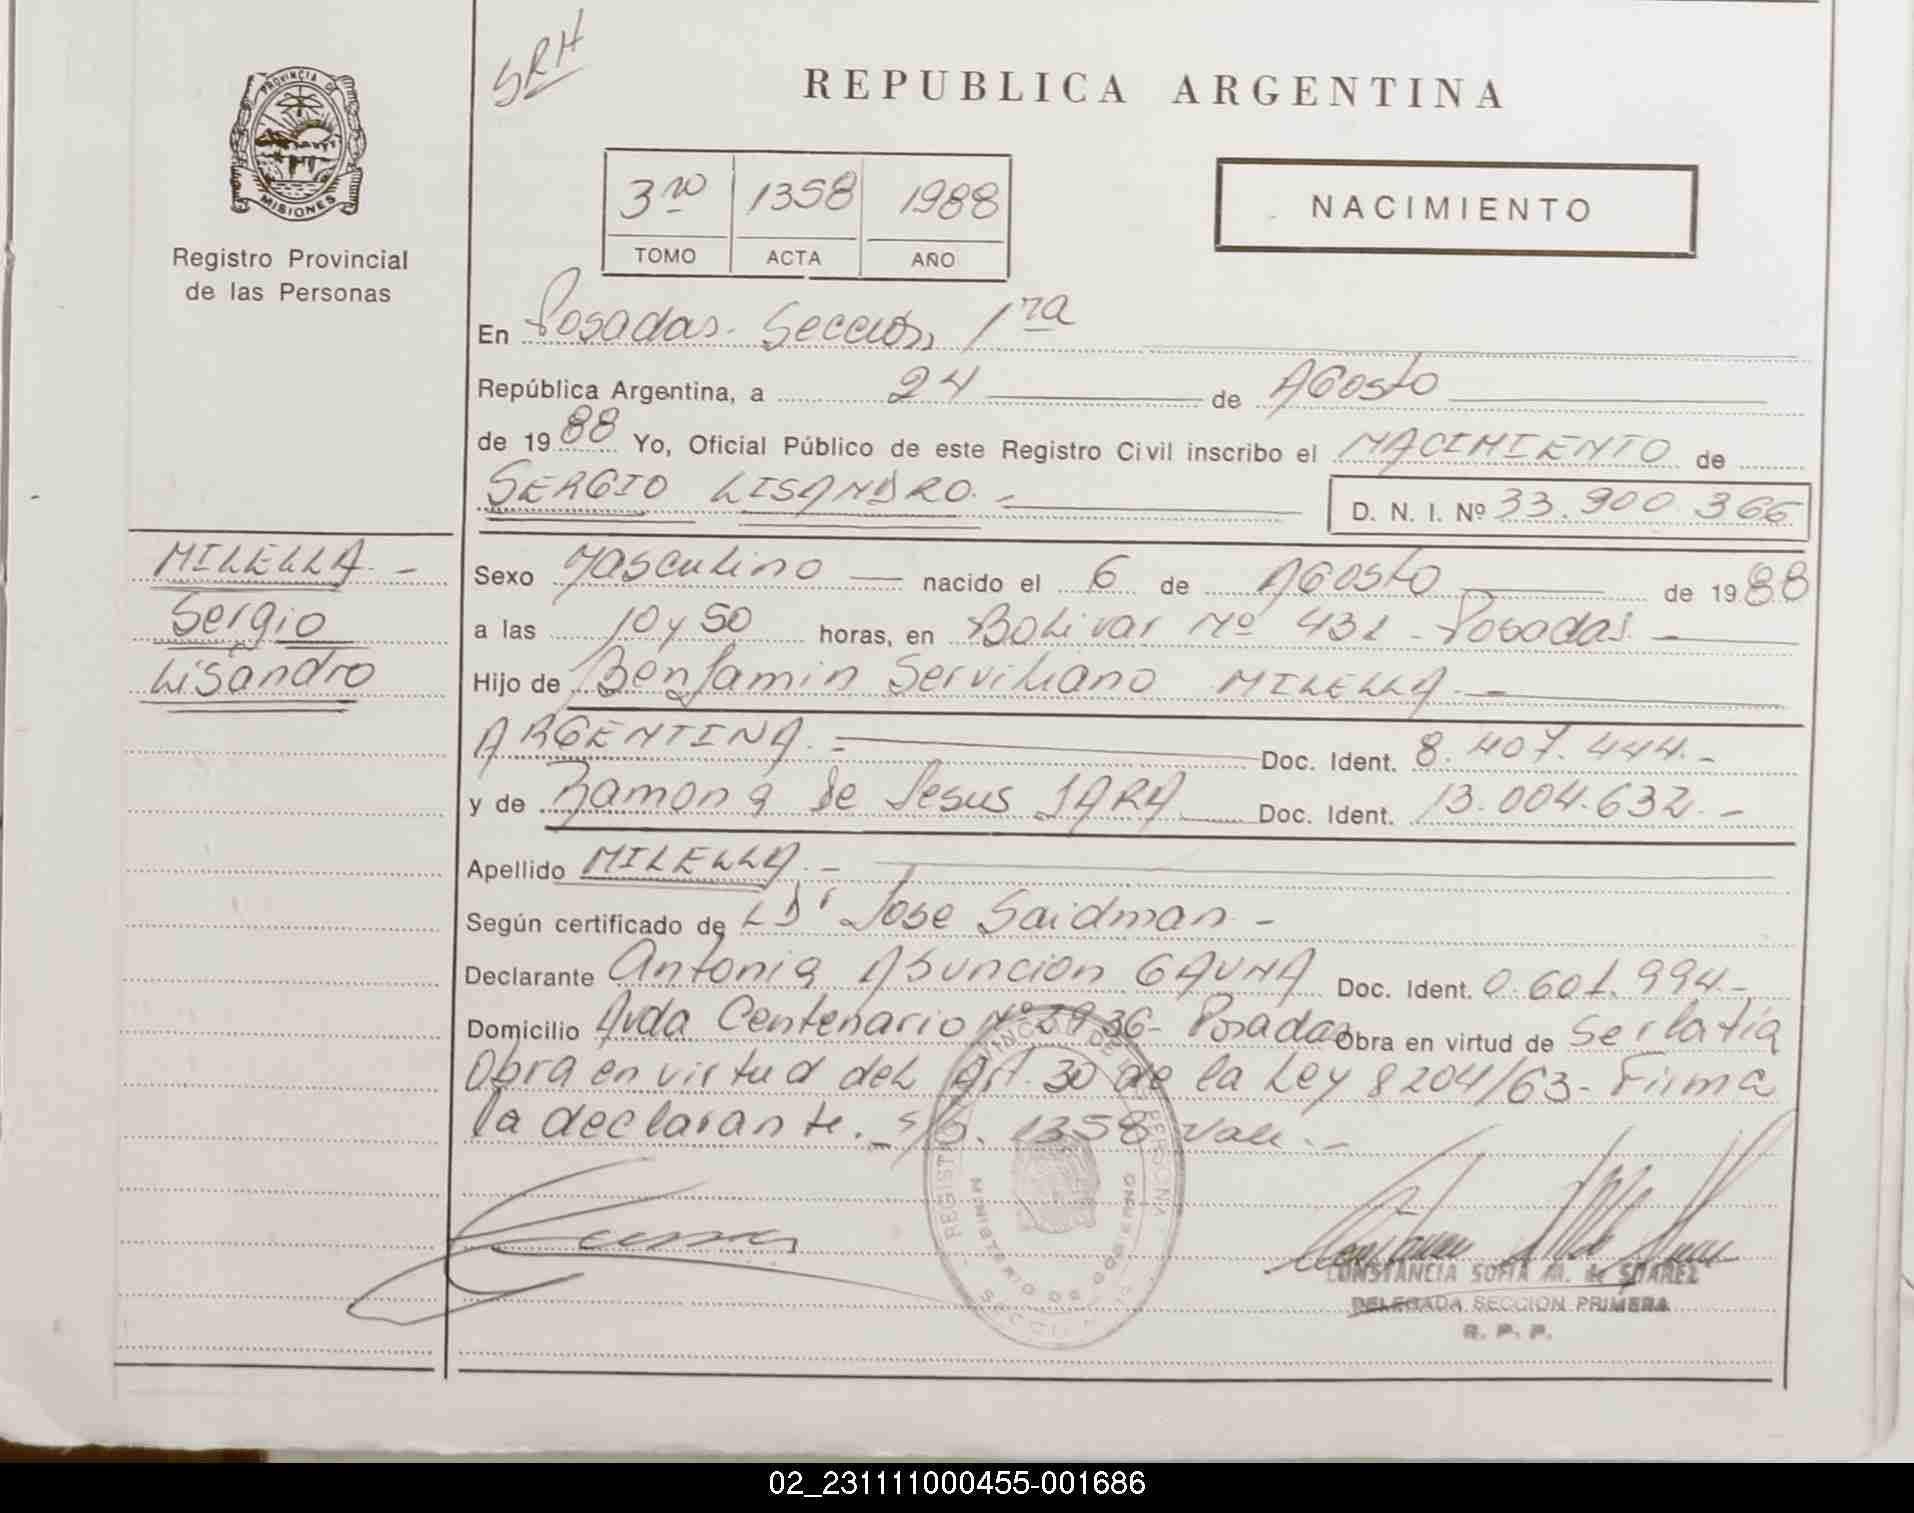 SRH
REPUBLICA ARGENTINA
PROVINCIA DE
MISIONES
Registro Provincial
de las Personas
3ro 1358 1988
TOMO ACTA AÑO
NACIMIENTO
En Posadas. Sección 1ra
República Argentina, a 24 de Agosto
de 1988 Yo, Oficial Público de este Registro Civil inscribo el NACIMIENTO de
SERGIO LISANDRO. - D. N. I. Nº 33.900.366
MILELLA. -
Sergio
Lisandro
Sexo Masculino nacido el 6 de Agosto de 1988
a las 10 y 50 horas, en Bolivar Nº 432 - Posadas. -
Hijo de Benjamin Serviliano MILELLA. -
ARGENTINA. - Doc. Ident. 8.407.444. -
y de Ramona de Jesus JARA Doc. Ident. 13.004.632. -
Apellido MILELLA. -
Según certificado de Dr Jose Saidman -
Declarante Antonia Asuncion GAUNA Doc. Ident. 0.601.994 -
Domicilio Avda Centenario Nº 2936 - Posadas Obra en virtud de Ser la tia
Obra en virtud del Art. 30 de la Ley 8204/63 - Firma
la declarante. - s/b. 1358 Vale. -
REGISTRO PROVINCIAL DE LAS PERSONAS
MINISTERIO DE GOBIERNO
CONSTANCIA SOFIA M. de SUAREZ
DELEGADA SECCION PRIMERA
R. P. P.
02_231111000455-001686